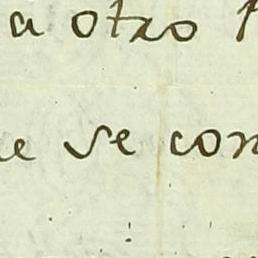 a otro
se con